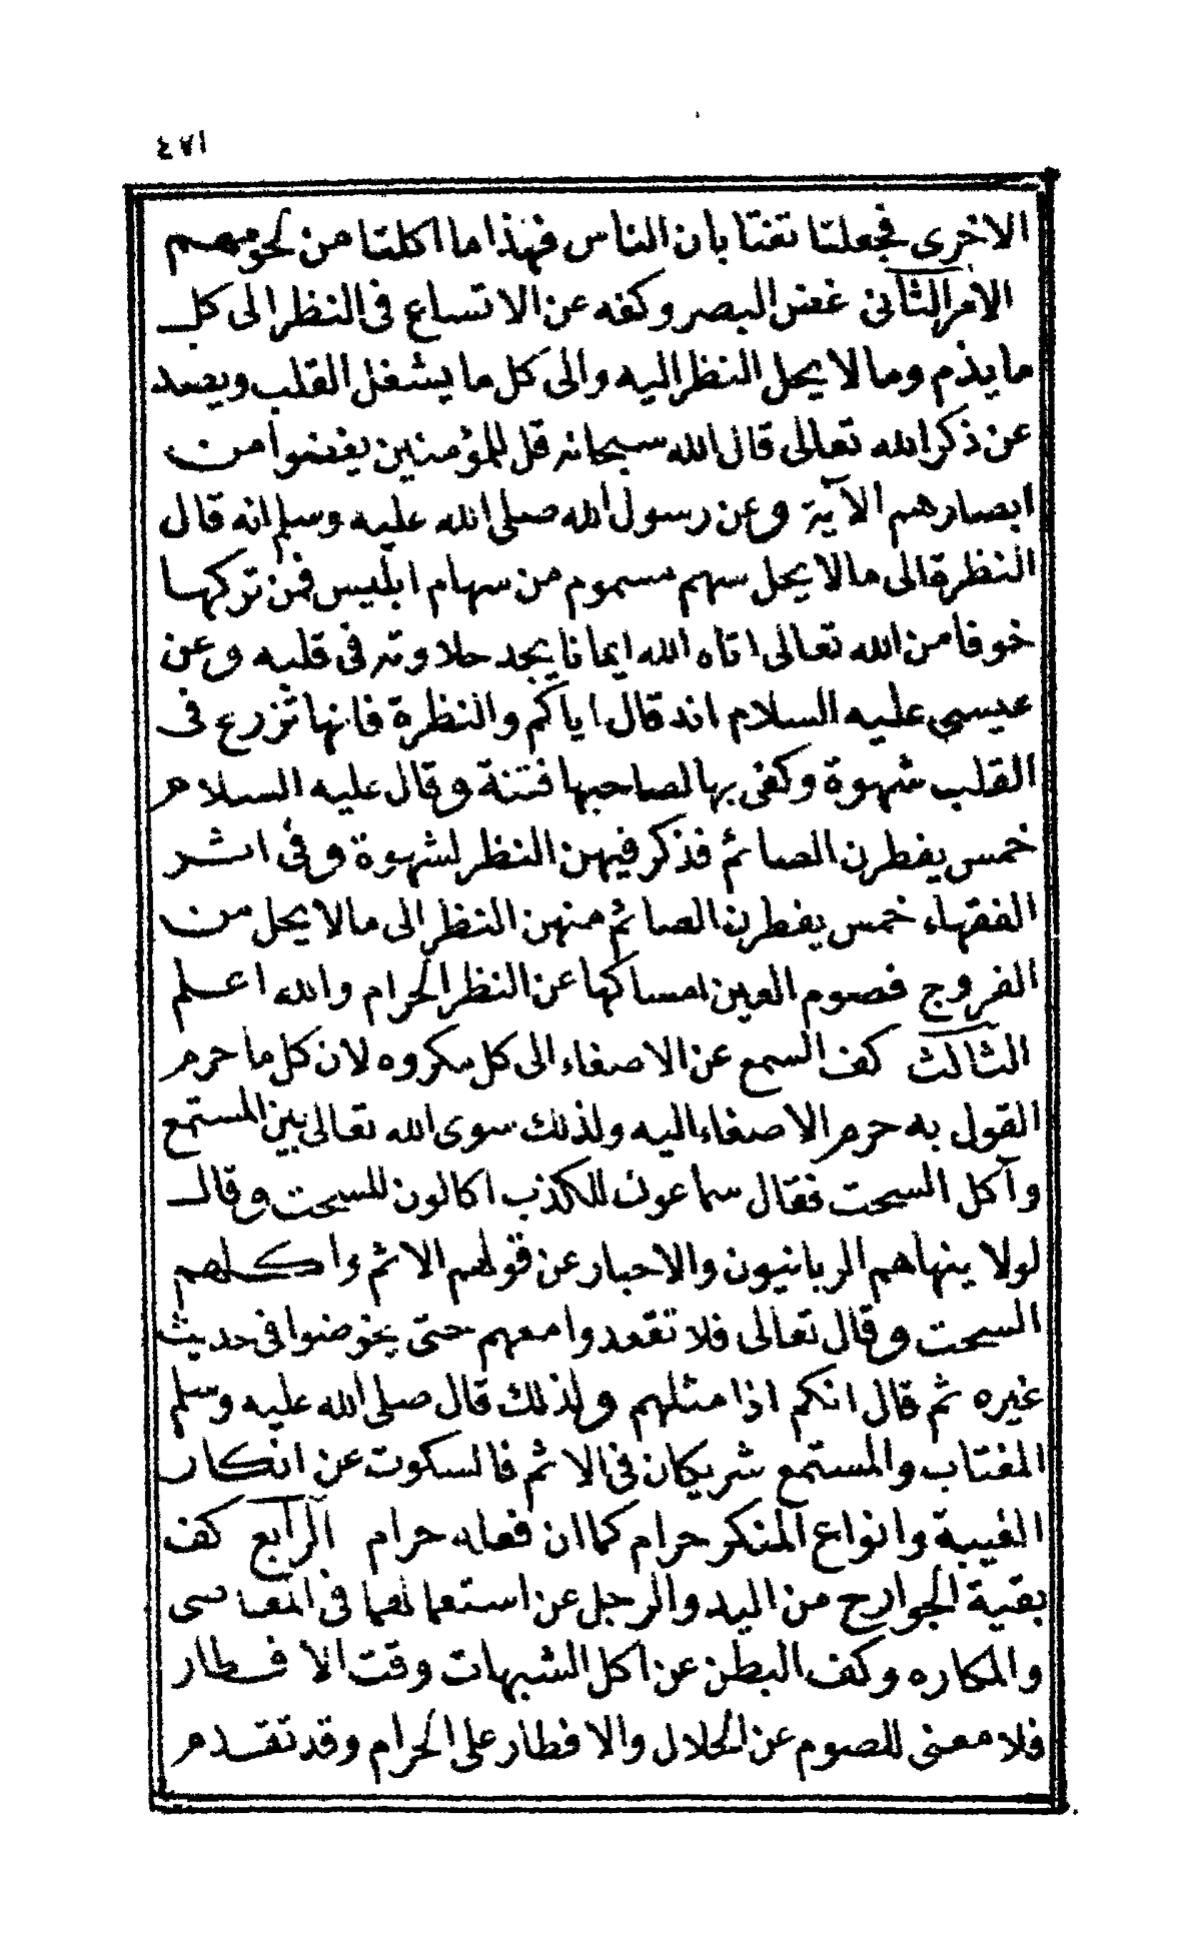 ٤٧١
الاخرى فجعلتا تغتابان الناس فهذا ما اكلتا من لحومهم
الامر الثانى غض البصر وكفه عن الاتساع فى النظر الى كل
ما يذم وما لا يحل النظر اليه والى كل ما يشغل القلب ويصد
عن ذكر الله تعالى قال الله سبحانه قل للمؤمنين يغضوا من
ابصارهم الآية وعن رسول الله صلى الله عليه وسلم انه قال
النظرة الى ما لا يحل سهم مسموم من سهام ابليس فمن تركها
خوفا من الله تعالى اتاه الله ايمانا يجد حلاوته فى قلبه وعن
عيسى عليه السلام انه قال اياكم والنظرة فانها تزرع فى
القلب شهوة وكفى بها لصاحبها فتنة وقال عليه السلام
خمس يفطرن الصائم فذكر فيهن النظر لشهوة وفى اثر
الفقهاء خمس يفطرن الصائم منهن النظر الى ما لا يحل من
الفروج فصوم العين امساكها عن النظر الحرام والله اعلم
الثالث كف السمع عن الاصغاء الى كل مكروه لان كل ما حرم
القول به حرم الاصغاء اليه ولذلك سوى الله تعالى بين المستمع
وآكل السحت فقال سماعون للكذب اكالون للسحت وقال
لولا ينهاهم الربانيون والاحبار عن قولهم الاثم واكلهم
السحت وقال تعالى فلا تقعدوا معهم حتى يخوضوا فى حديث
غيره ثم قال انكم اذا مثلهم ولذلك قال صلى الله عليه وسلم
المغتاب والمستمع شريكان فى الاثم فالسكوت عن انكار
الغيبة وانواع المنكر حرام كما ان فعله حرام الرابع كف
بقية الجوارح من اليد والرجل عن استعمالهما فى المعاصى
والمكاره وكف البطن عن اكل الشبهات وقت الافطار
فلا معنى للصوم عن الحلال والافطار على الحرام وقد تقدم